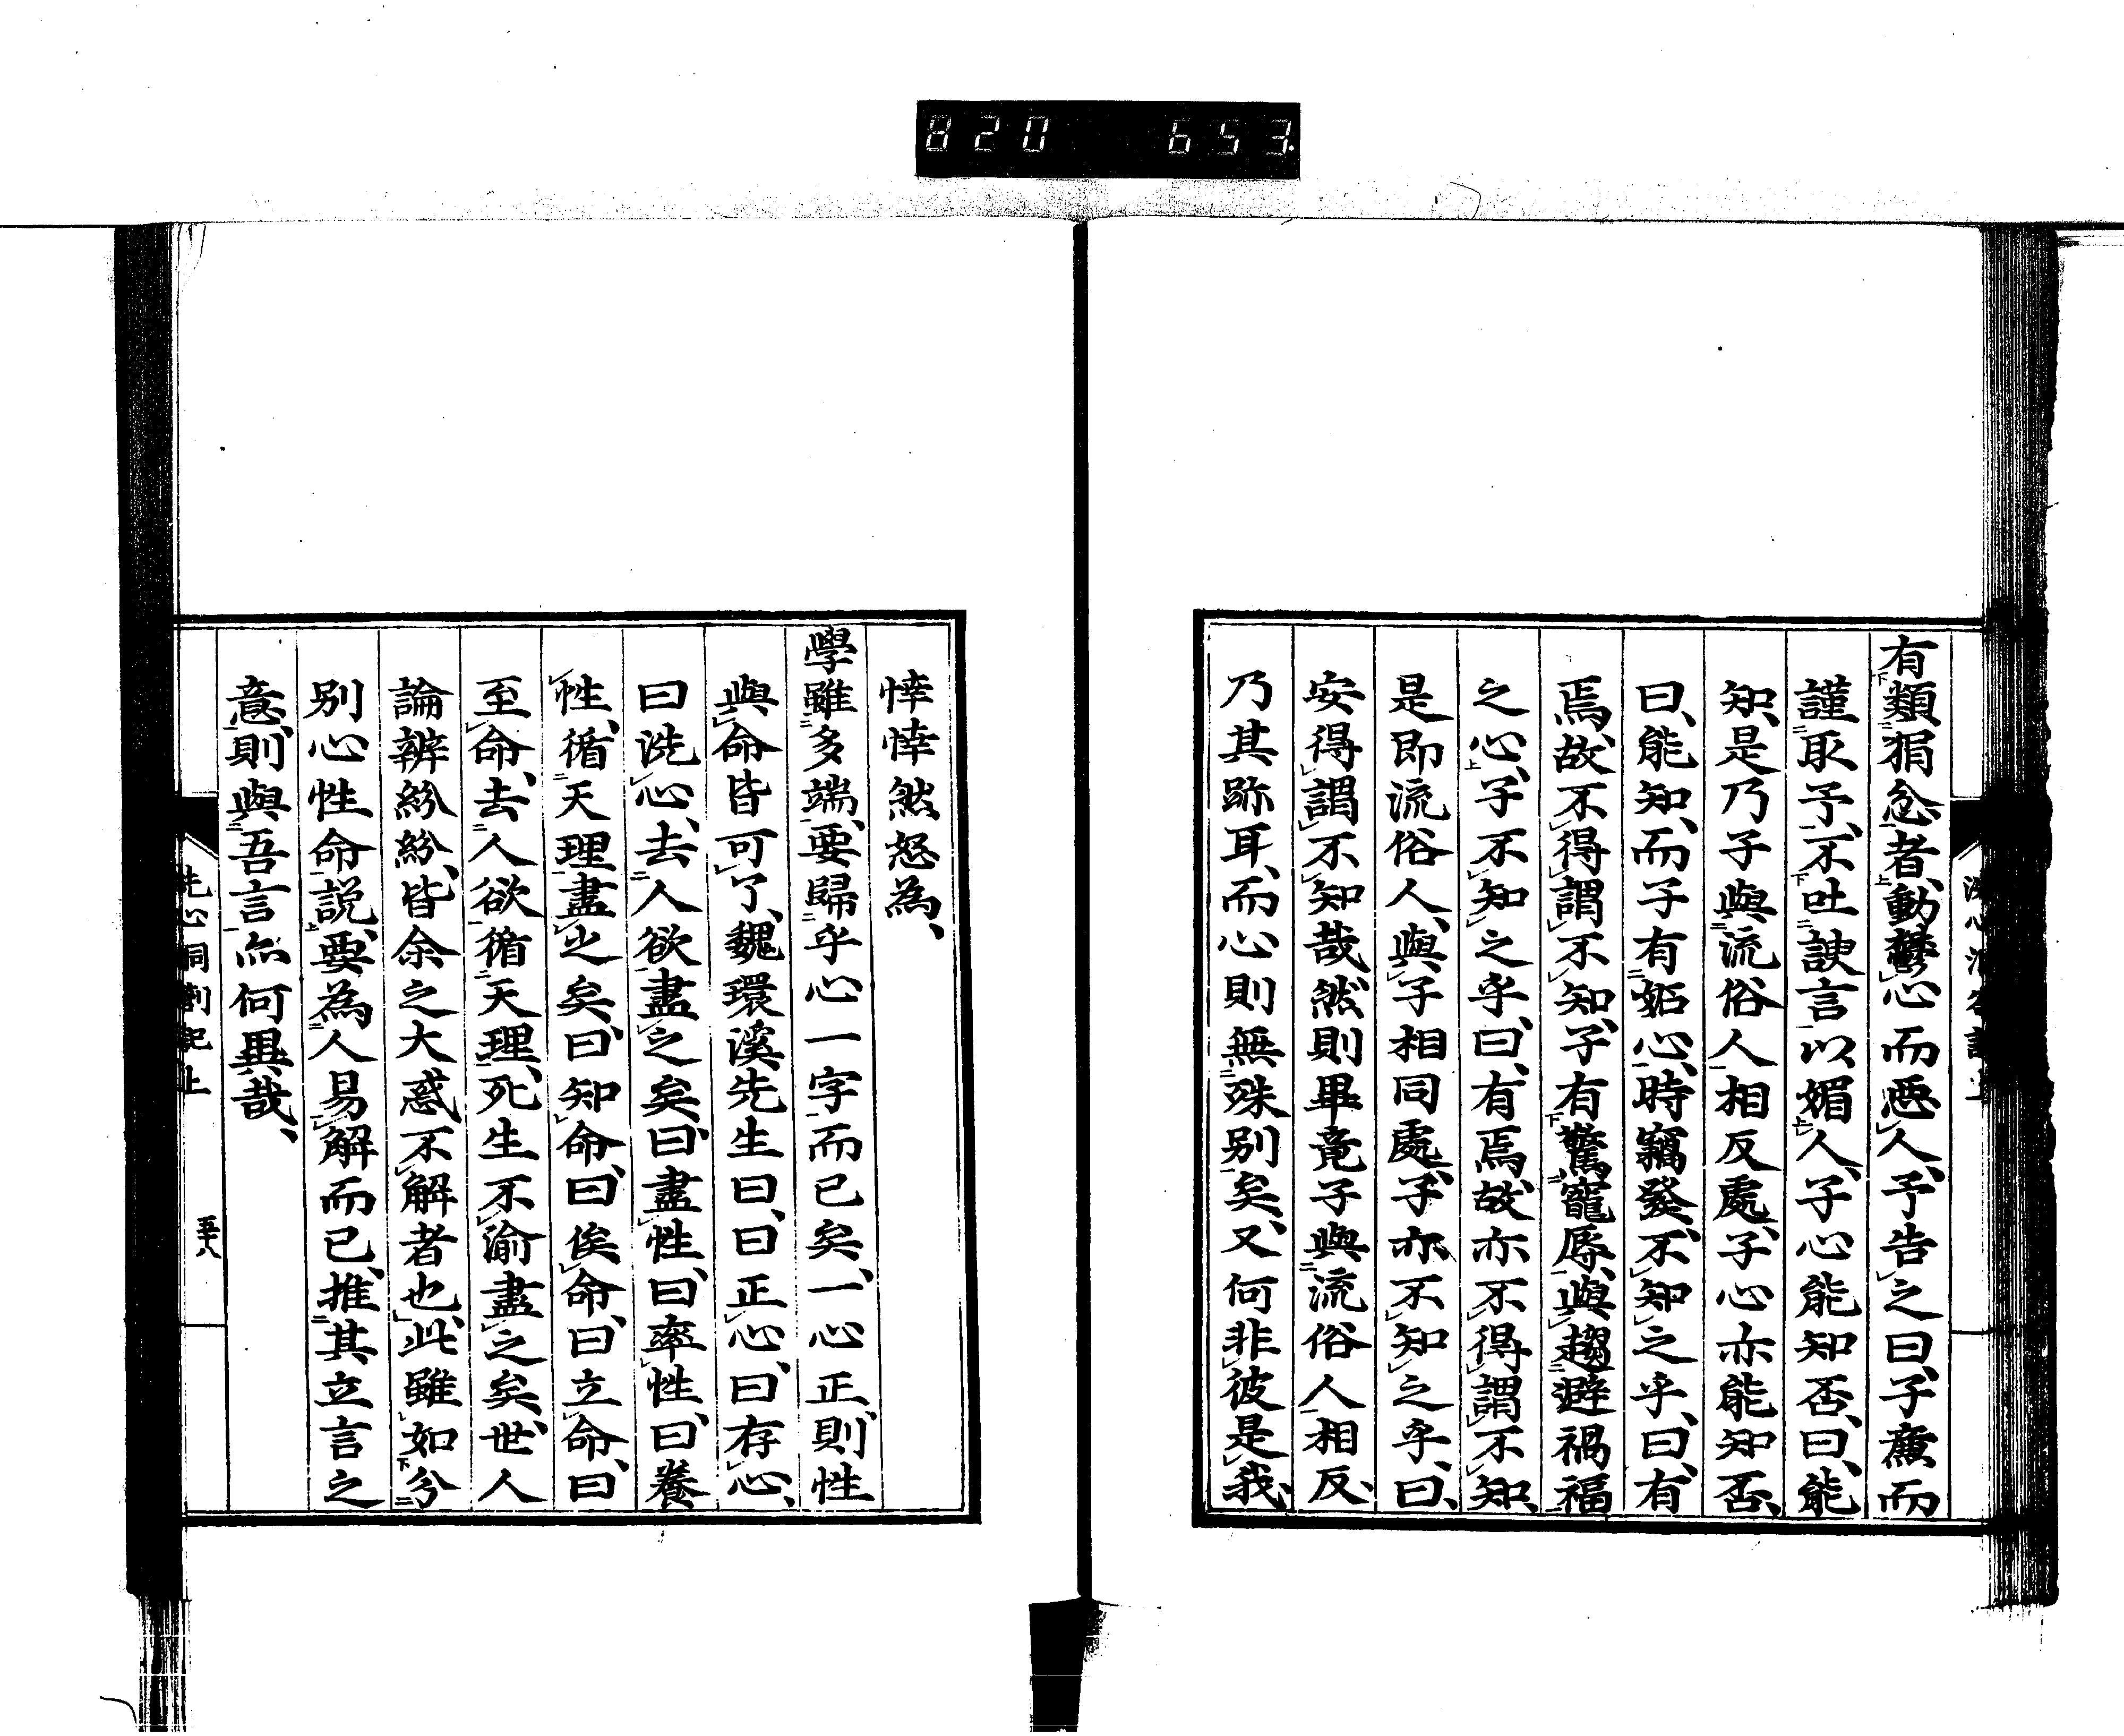 820 653.
有類狷忿者、動鬱心而惡人、予告之曰、子廉而
謹取予、不吐諛言以媚人、子心能知否、曰、能
知、是乃子與流俗人相反處、子心亦能知否、
曰、能知、而子有妬心、時竊發、不知之乎、曰、有
焉、故不得謂不知、子有驚寵辱、與趨避禍福
之心、子不知之乎、曰、有焉、故亦不得謂不知、
是即流俗人、與子相同處、子亦不知之乎、曰、
安得謂不知哉、然則畢竟子與流俗人相反、
乃其跡耳、而心則無殊別矣、又何非彼是我、
悻悻然怒為、
學雖多端、要歸乎心一字而已矣、一心正、則性
與命皆可了、魏環溪先生曰、曰正心、曰存心、
曰洗心、去人欲盡之矣、曰盡性、曰率性、曰養
性、循天理盡之矣、曰知命、曰俟命、曰立命、曰
至命、去人欲循天理、死生不渝盡之矣、世人
論辨紛紛、皆余之大惑不解者也、此雖如分
別心性命說、要為人易解而已、推其立言之
意、則與吾言亦何異哉、
洗心洞劄記上 五十八